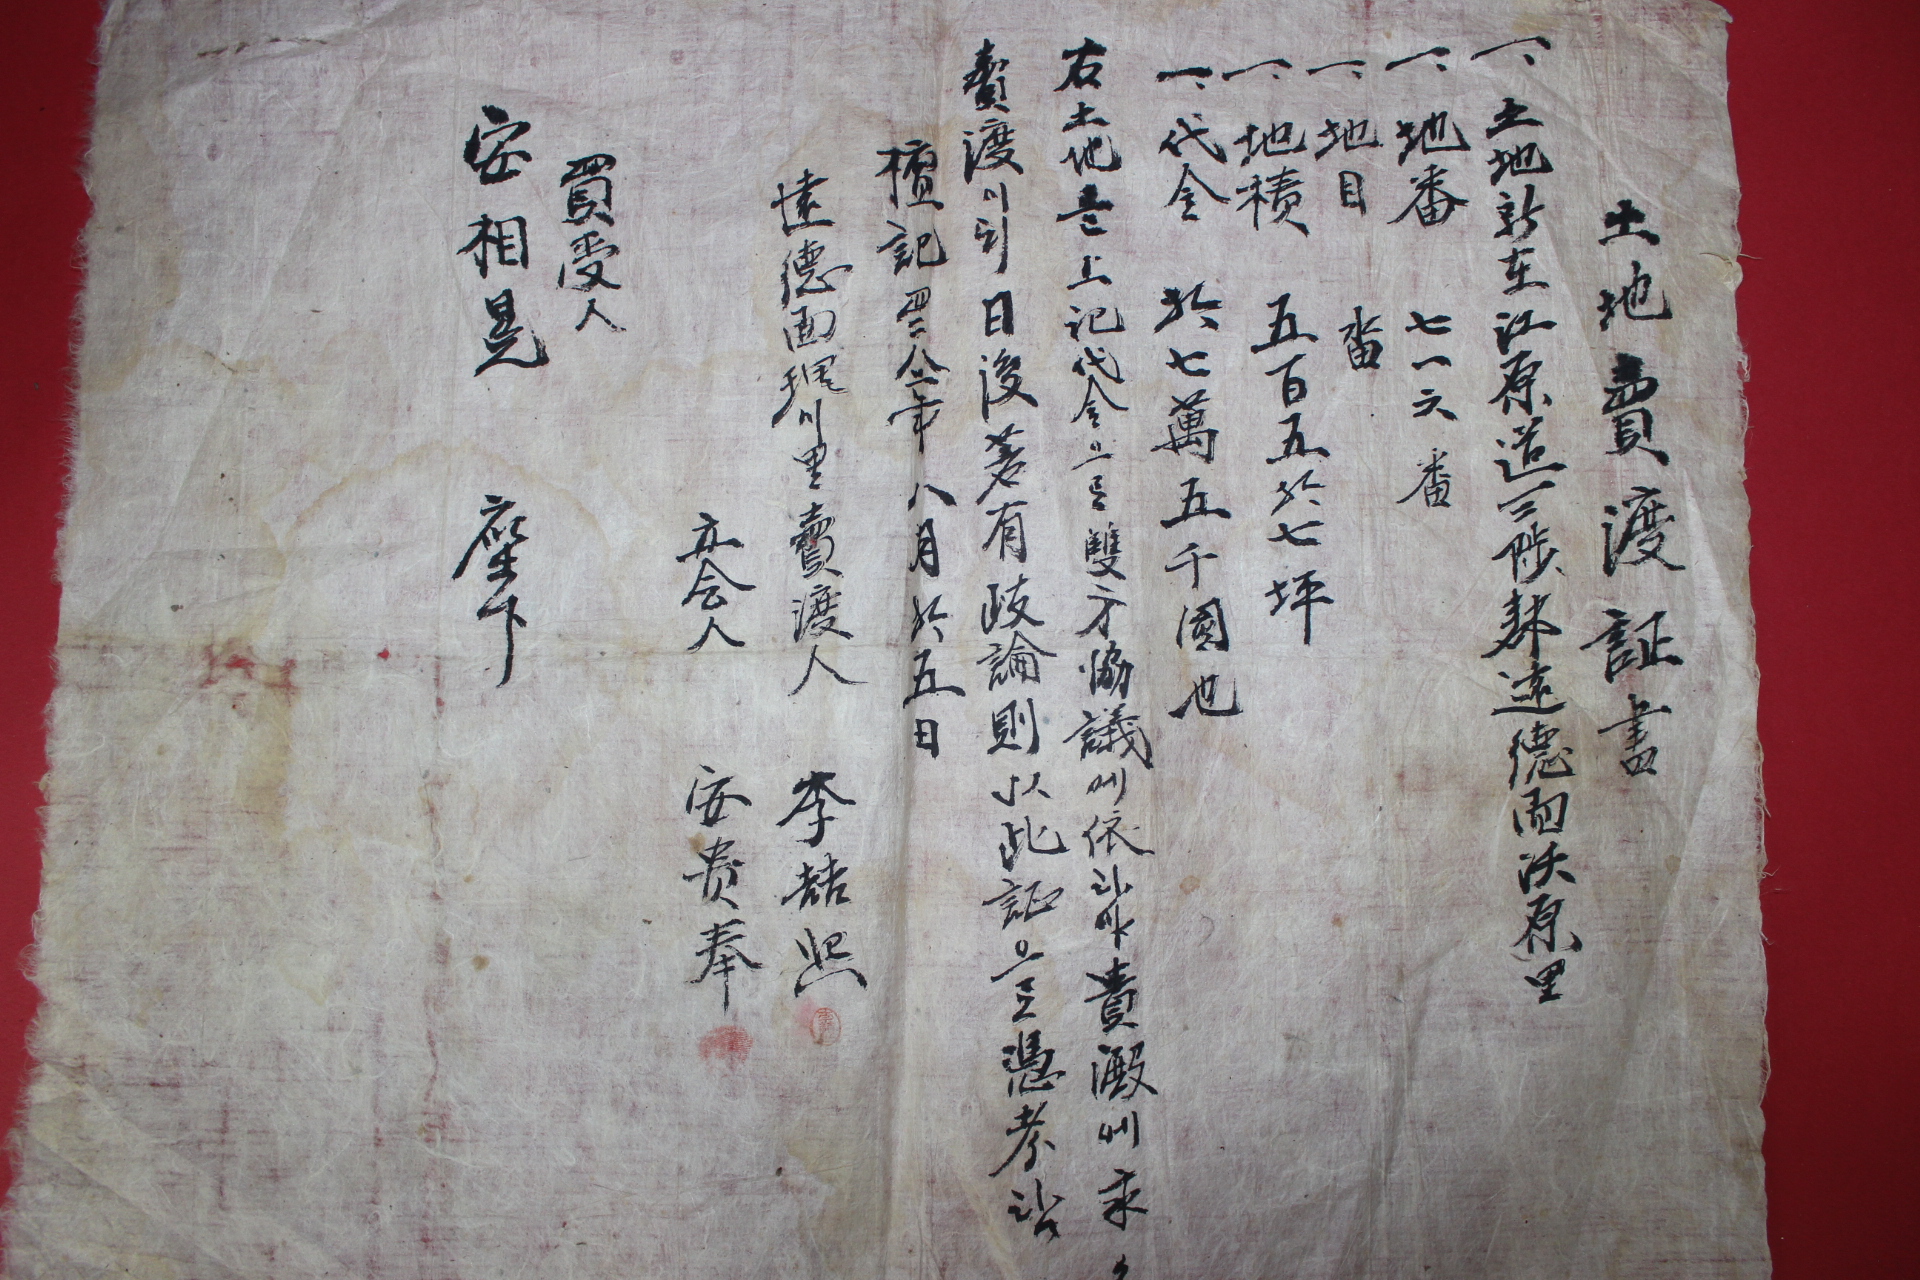 土地賣渡証書
一、土地所在江原道三陟郡遠德面沃原里
一、地番 七一六番
一、地目 畓
一、地積 五百五拾七坪
一、代金 拾七萬五千圜也
右土地를上記代金으로雙方協議에依하야貴殿에永
賣渡이되 日後若有歧論則以此証으로憑考할
檀記四二八 年八月拾五日
遠德面 里賣渡人 李喆熙
立会人 安贵奉
買受人
安相晃 座下